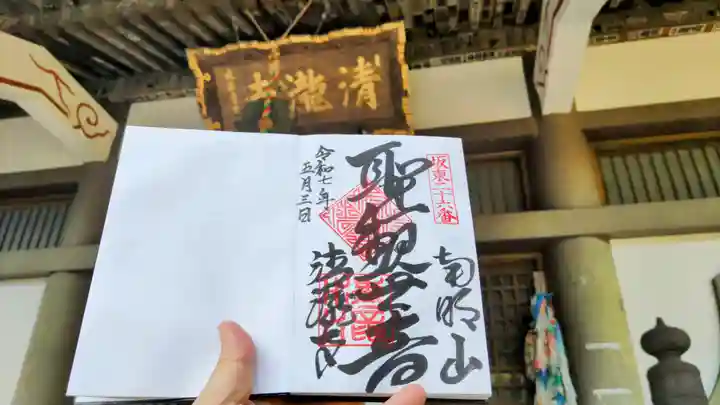 清瀧寺
坂東二十六番
南明山
聖観世音
清瀧寺
令和七年
五月三日